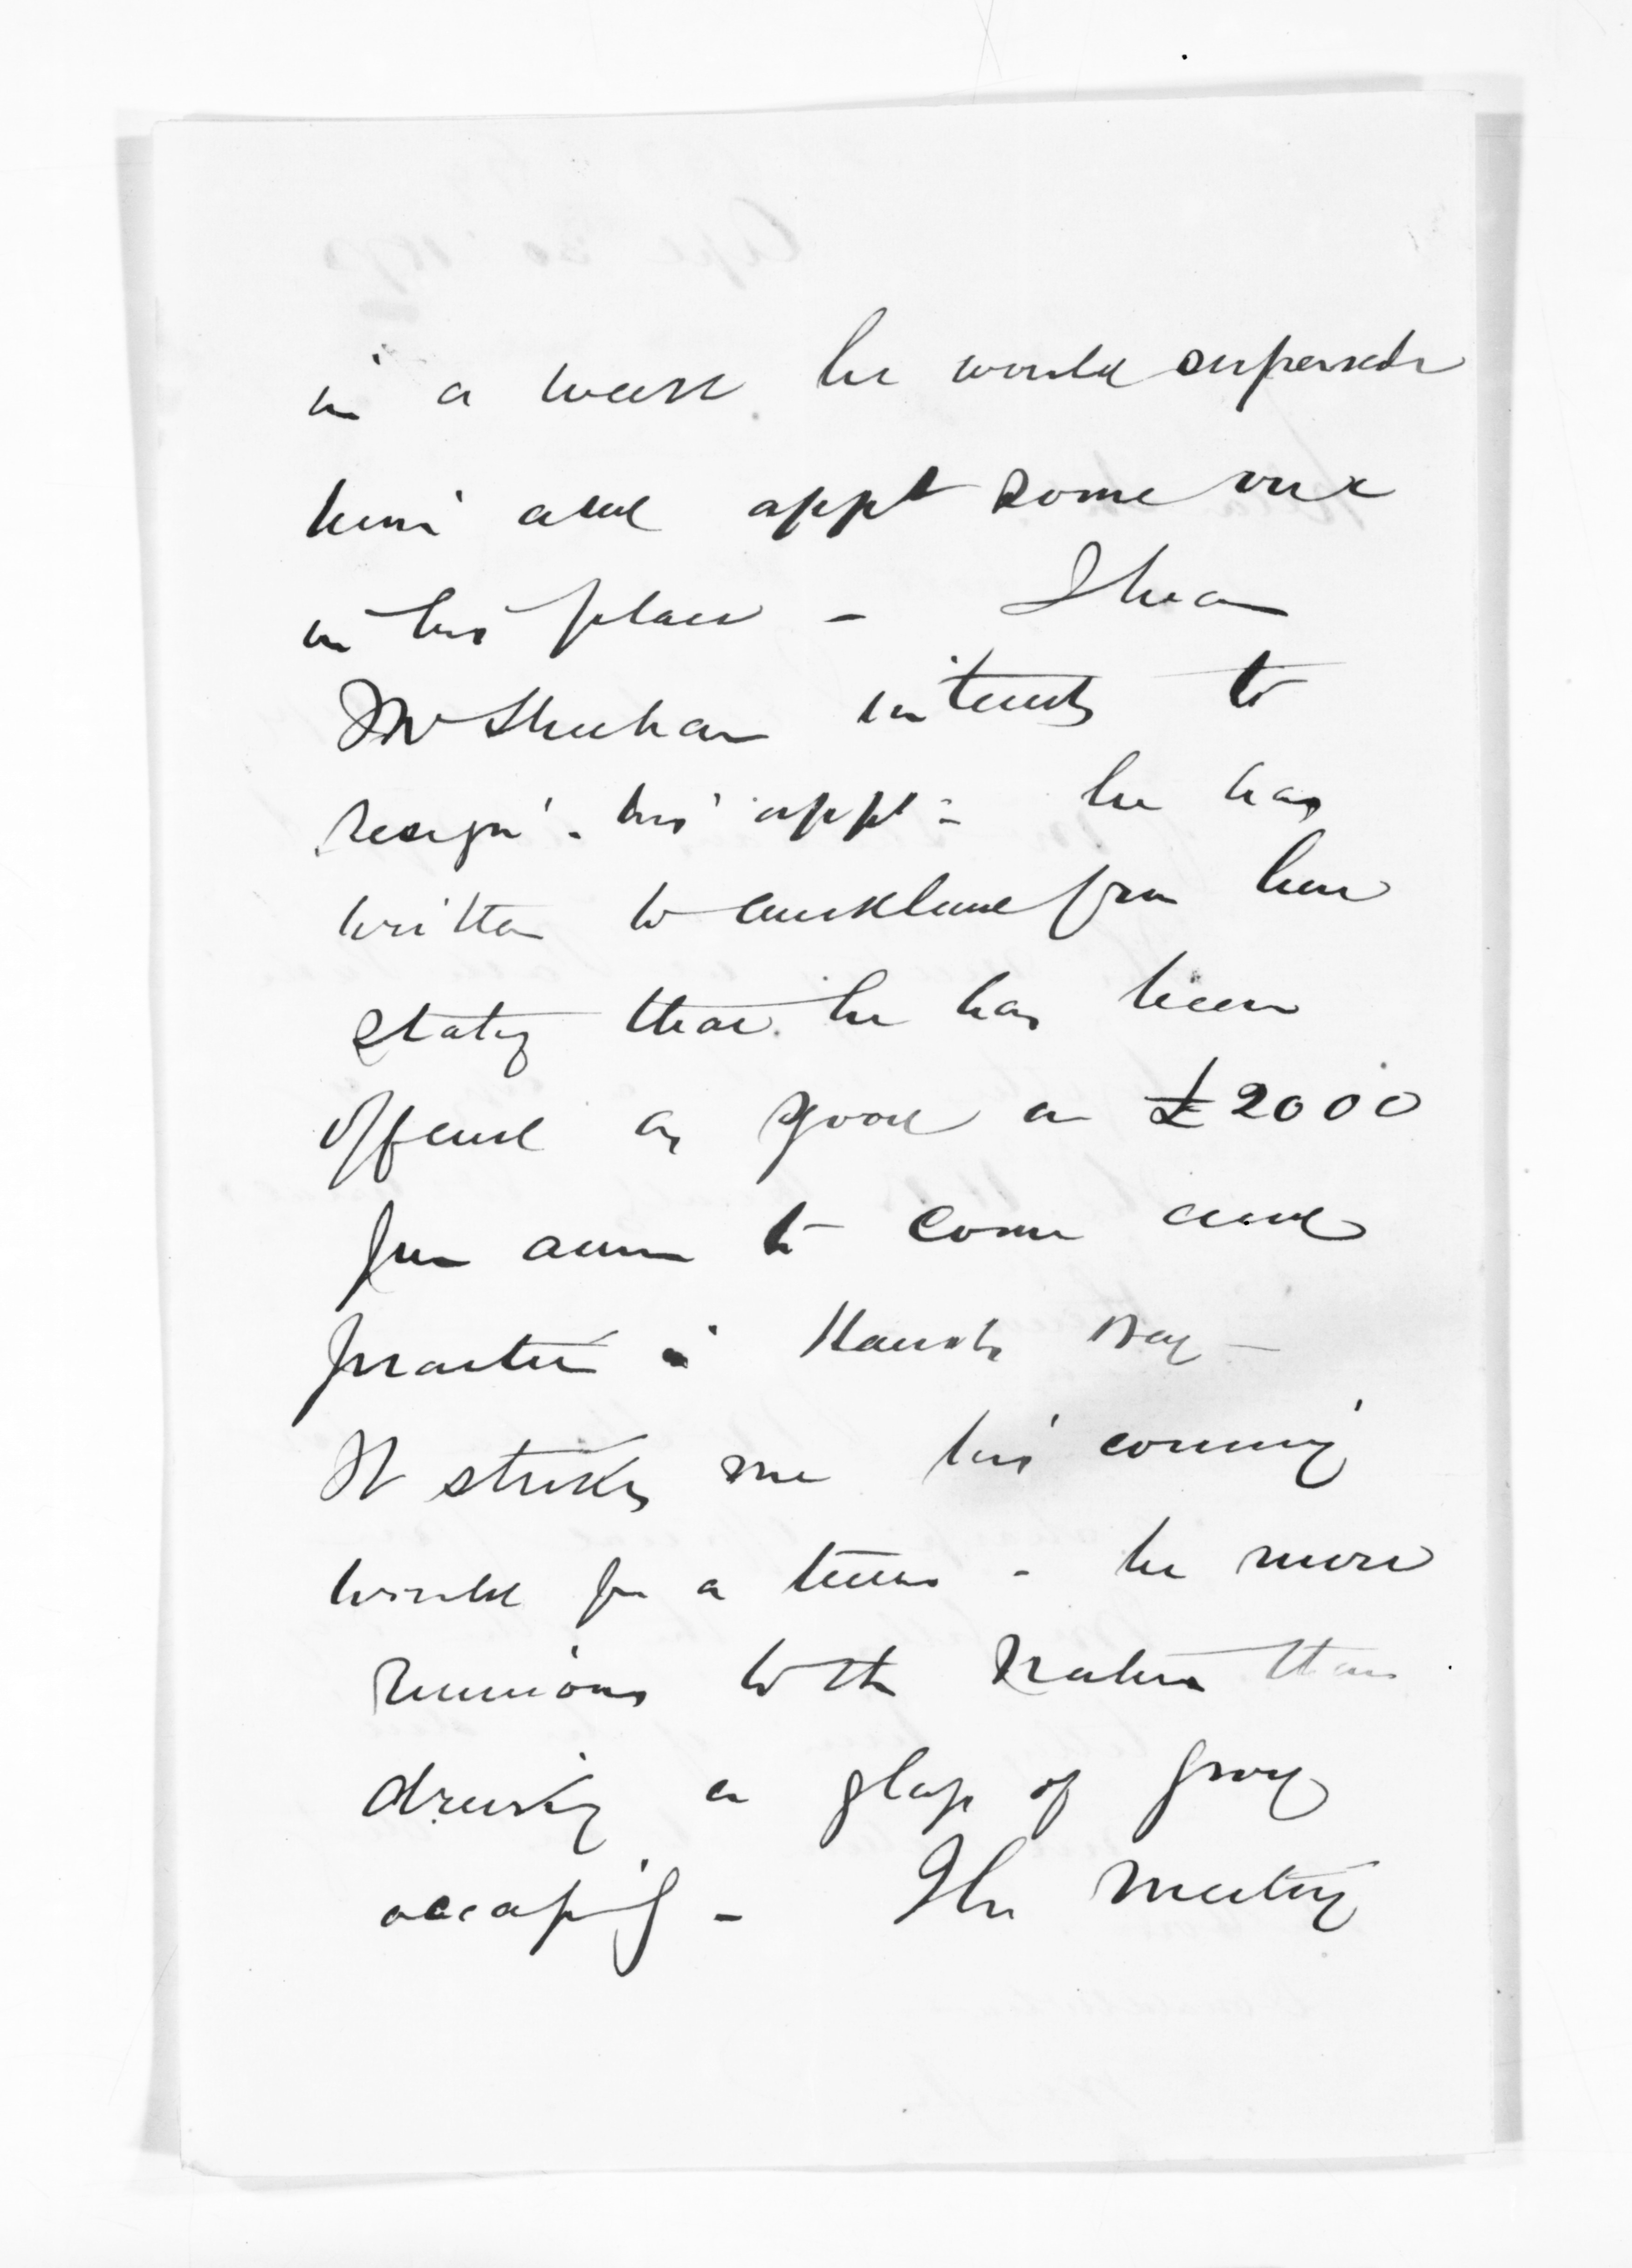 in a week he would supersede
him and appt some one
in his place - I hear
Mr Sheehan intends to
resign his appt - he has
written to Auckland from here
stating that he has been
offered as good as £2000
per annm to come and
practice in Hawkes Bay -
It strikes me his coming
would be a - he more
to the Natives than
drinking a glass of grog
occasily - The meeting